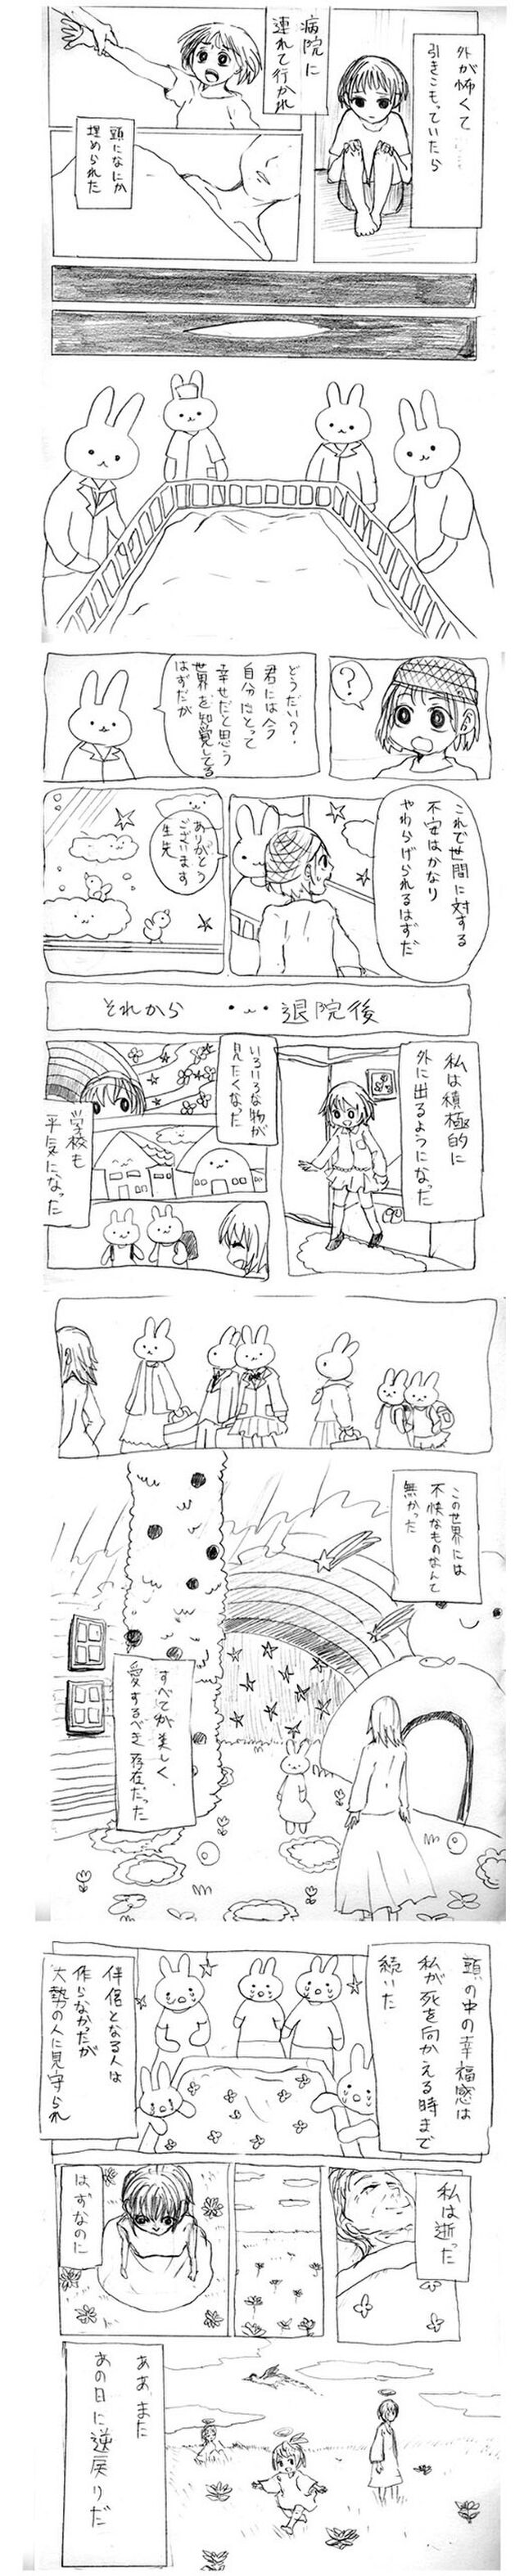 外が怖くて
引きこもっていたら
病院に
連れて行かれ
頭になにか
埋められた
?
どうだい?
君には今
自分にとって
幸せだと思う
世界を知覚してる
はずだが
これで世間に対する
不安はかなり
やわらげられるはずだ
ありがとう
ございます
先生
それから
退院後
私は積極的に
外に出るようになった
いろいろな物が
見たくなった
学校も
平気になった
この世界には
不快なものなんて
無かった
すべてが美しく、
愛するべき存在だった
頭の中の幸福感は
私が死を向かえる時まで
続いた
伴侶となる人は
作らなかったが
大勢の人に見守られ
私は逝った
はずなのに
ああまた
あの日に逆戻りだ